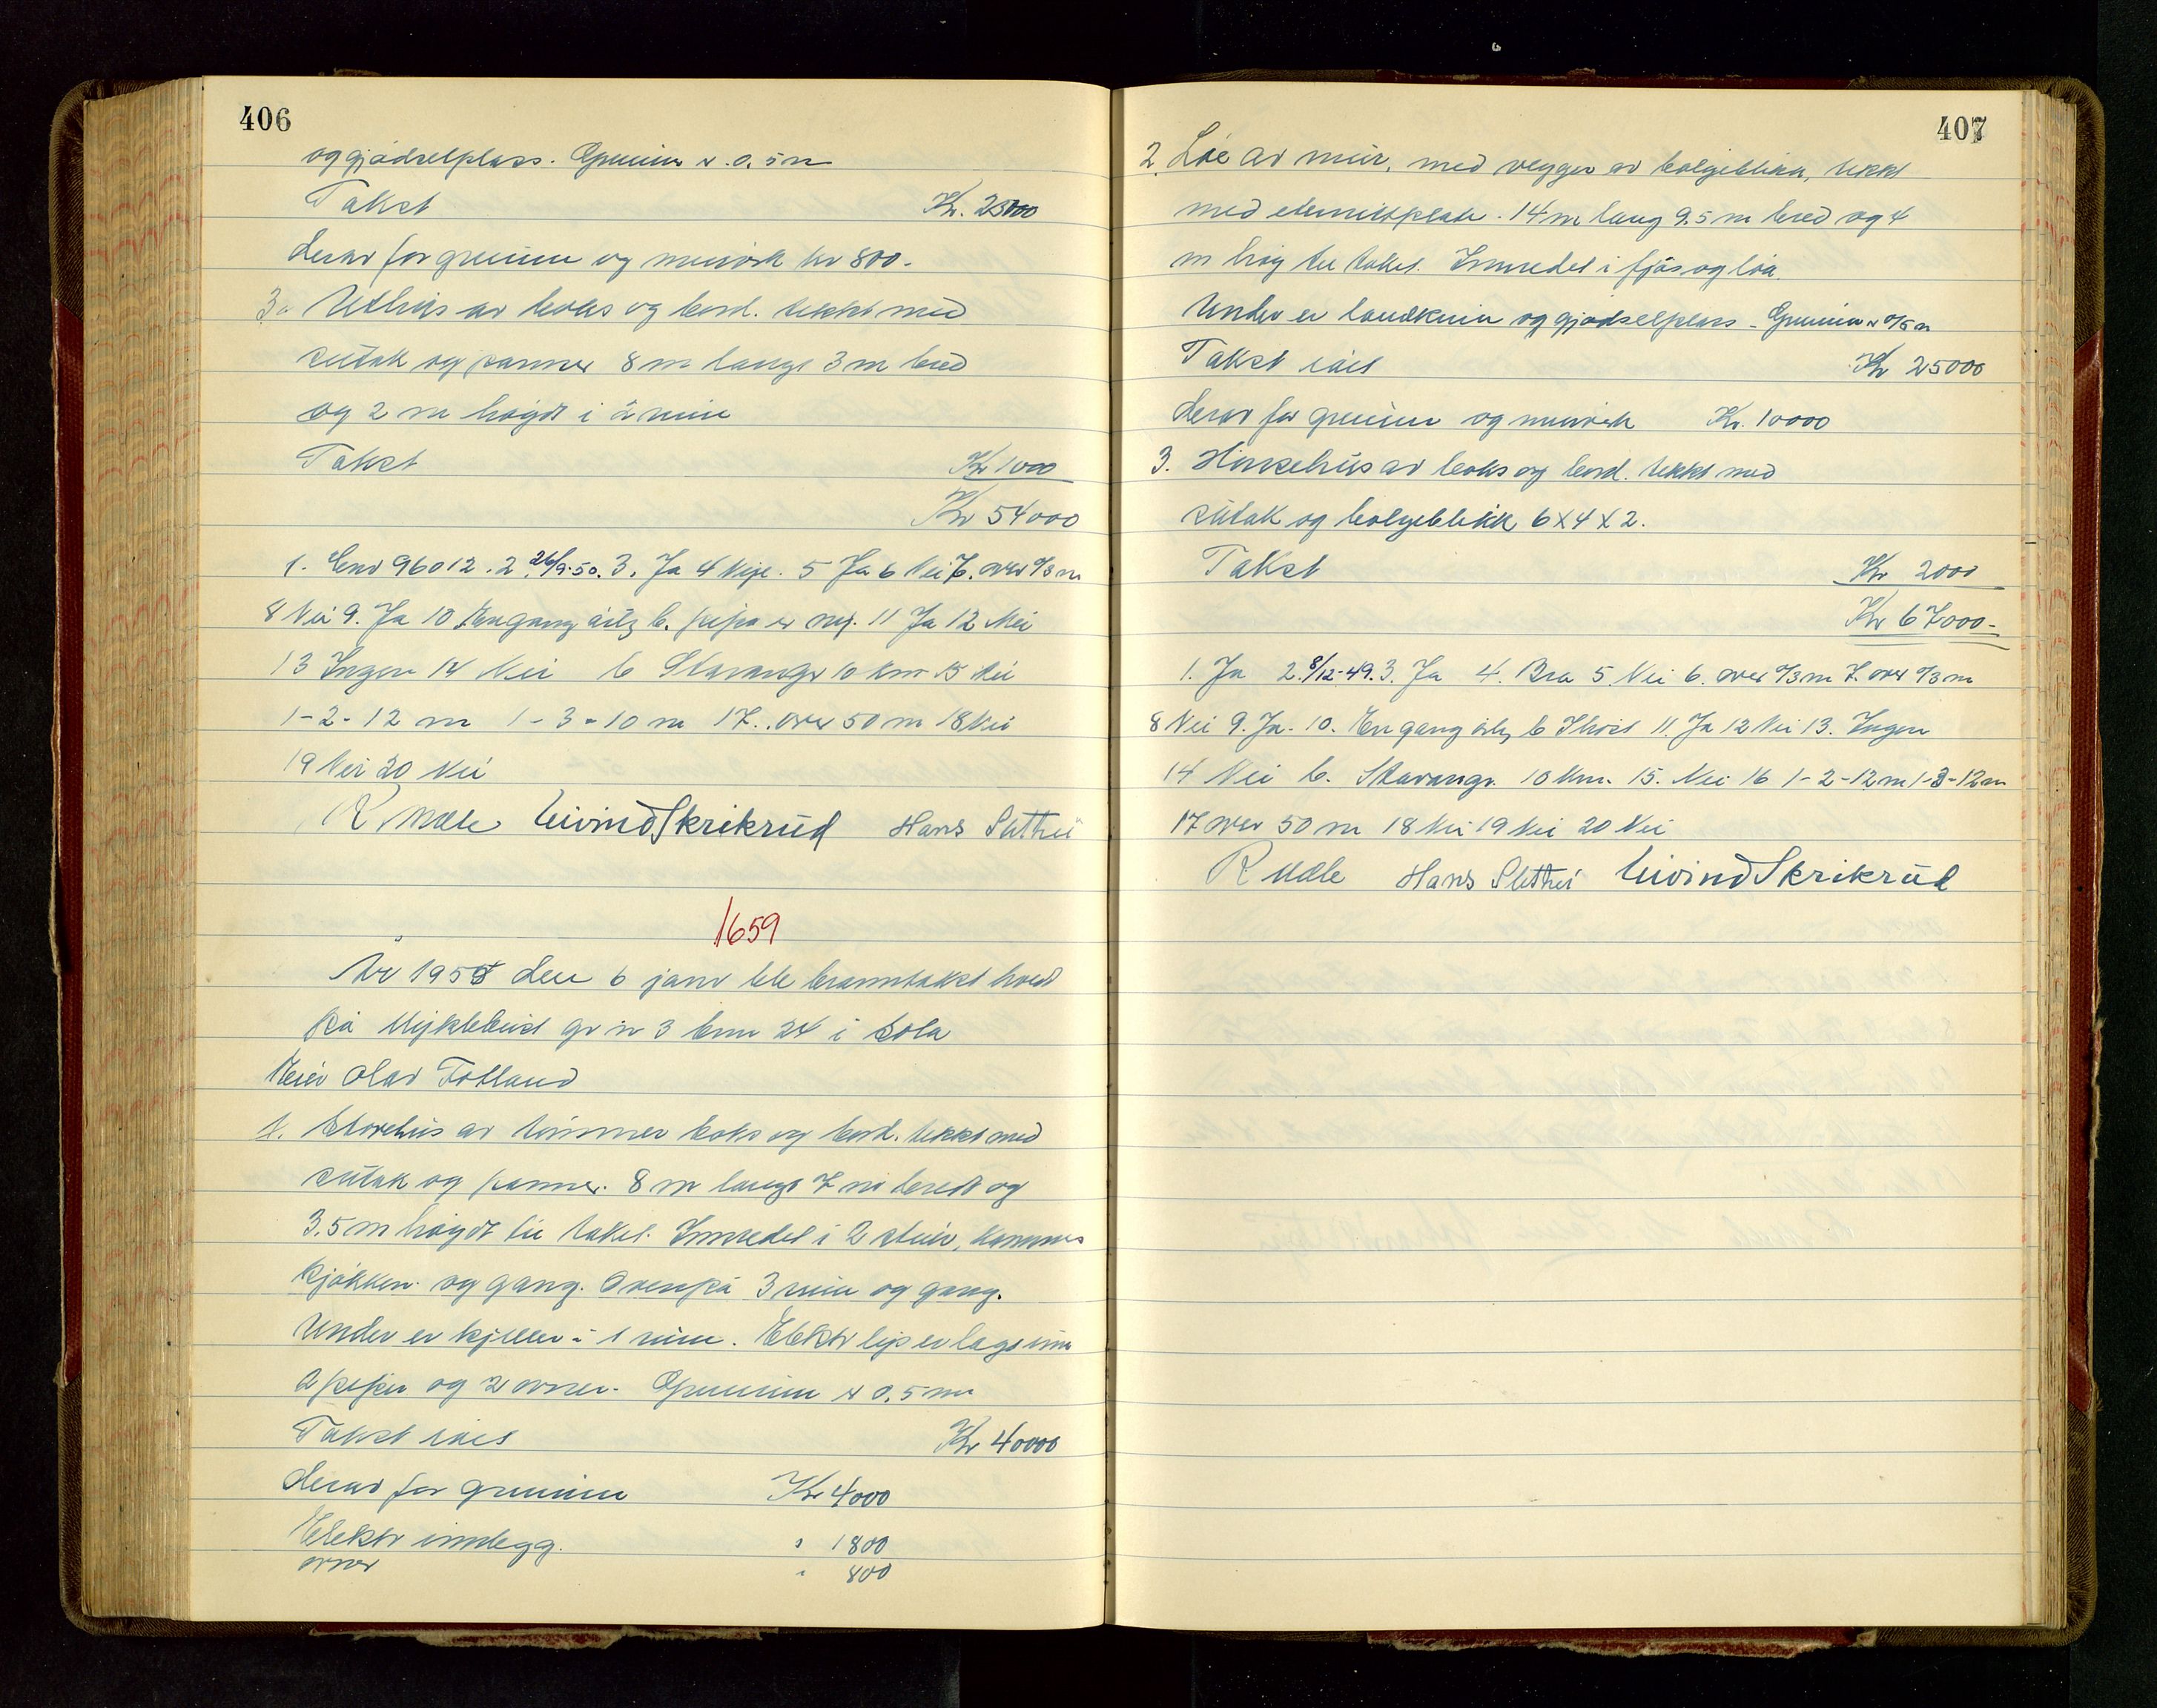 406
og gjødselplass. Grunnm er 0,5 m
Takst Kr. 25000
derav for grunnm og murverk kr 800.
3. Uthus av boks og bord. tekkt med
sutak og panner 8 m langt 3 m bred
og 2 m høgdt i 2 rum
Takst Kr 1000
Kr 54000
1. 96012. 2. 26/9-50. 3. Ja 4 5 Ja 6 Nei 7. over 0/3 m
8 Nei 9. Ja 10 En gang årlig b. pipa er 11 Ja 12 Nei
13 Ingen 14 Nei b Stavanger 10 km 15 Nei
1-2-12 m 1-3-10 m 17. over 50 m 18 Nei
19 Nei 20 Nei
Eivind Skrikrud Hans
1659
År 1951 den 6 janr ble branntakst holdt
på Myklebust gr nr 3 bnr 24 i Sola
Eier Olav Totland
1. Storehus av tømmer boks og bord. tekkt med
sutak og panner. 8 m langt 7 m bredt og
3.5 m høgdt til taket. Innredet i 2 stuer, kammers
kjøkken og gang. Ovenpå 3 rum og gang.
Under er kjeller i 1 rum. Elektr lys er lagt inn
2 piper og 2 ovner. Grunnm er 0,5 m
Takst Kr 40000
derav for grunnm Kr 4000
Elektr innlegg. " 1800
ovner " 800
407
2. Løe av mur, med vegger av bølgeblikk, tekkt
med eternittplate. 14 m lang 9.5 m bred og 4
m høg til taket. Innredet i fjøs og løa.
Under er landkum og gjødselplass. Grunnm er 0/5 m
Takst Kr 25000
derav for grunnm og murverk Kr. 10000
3. Hønsehus av boks og bord. tekkt med
sutak og bølgeblikk 6 X 4 X 2.
Takst Kr 2000
Kr 67000-
1. Ja 2. 8/12-49. 3. Ja 4. Bra 5 Nei 6. over 0/3 m 7. over 0/3 m
8 Nei 9. Ja. 10. En gang årlig b 11. Ja 12 Nei 13. Ingen
14 Nei b. Stavanger. 10 km. 15. Nei 16 1-2-12 m 1-3-12 m
17 over 50 m 18 Nei 19 Nei 20 Nei
Hans Eivind Skrikrud